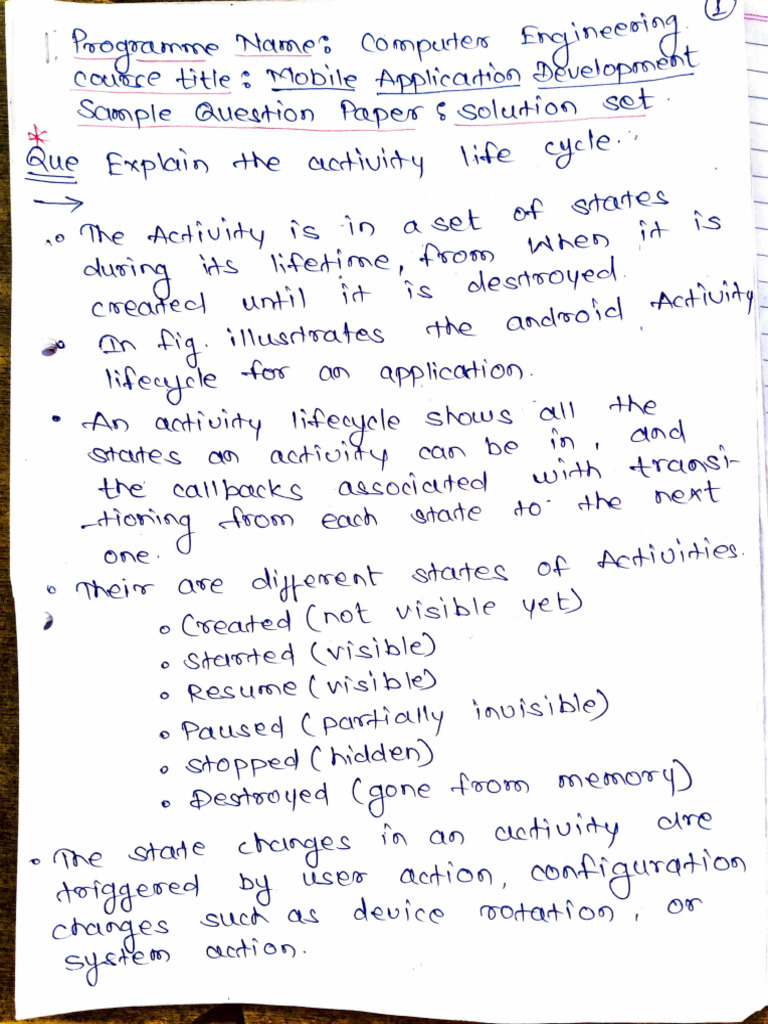 1
Programme Name: Computer Engineering
course title: Mobile Application Development
Sample Question Paper & solution set.
Que Explain the activity life cycle.
→
• The Activity is in a set of states
during its lifetime, from when it is
created until it is destroyed.
• In fig. illustrates the android Activity
lifecycle for an application.
• An activity lifecycle shows all the
states an activity can be in, and
the callbacks associated with transi-
-tioning from each state to the next
one.
• Their are different states of Activities.
• Created (not visible yet)
• Started (visible)
• Resume (visible)
• Paused (partially invisible)
• Stopped (hidden)
• Destroyed (gone from memory)
• The state changes in an activity are
triggered by user action, configuration
changes such as device rotation, or
system action.